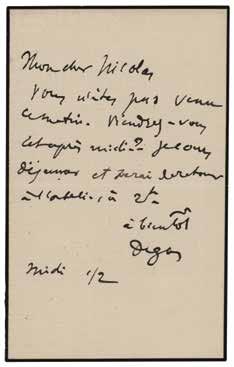 Mon cher Nicolas
Vous n'êtes pas venu
ce matin. Viendrez-vous
cet après midi? Je cours
déjeuner et serai de retour
à l'atelier à 2h
à bientôt
Degas
Midi 1/2